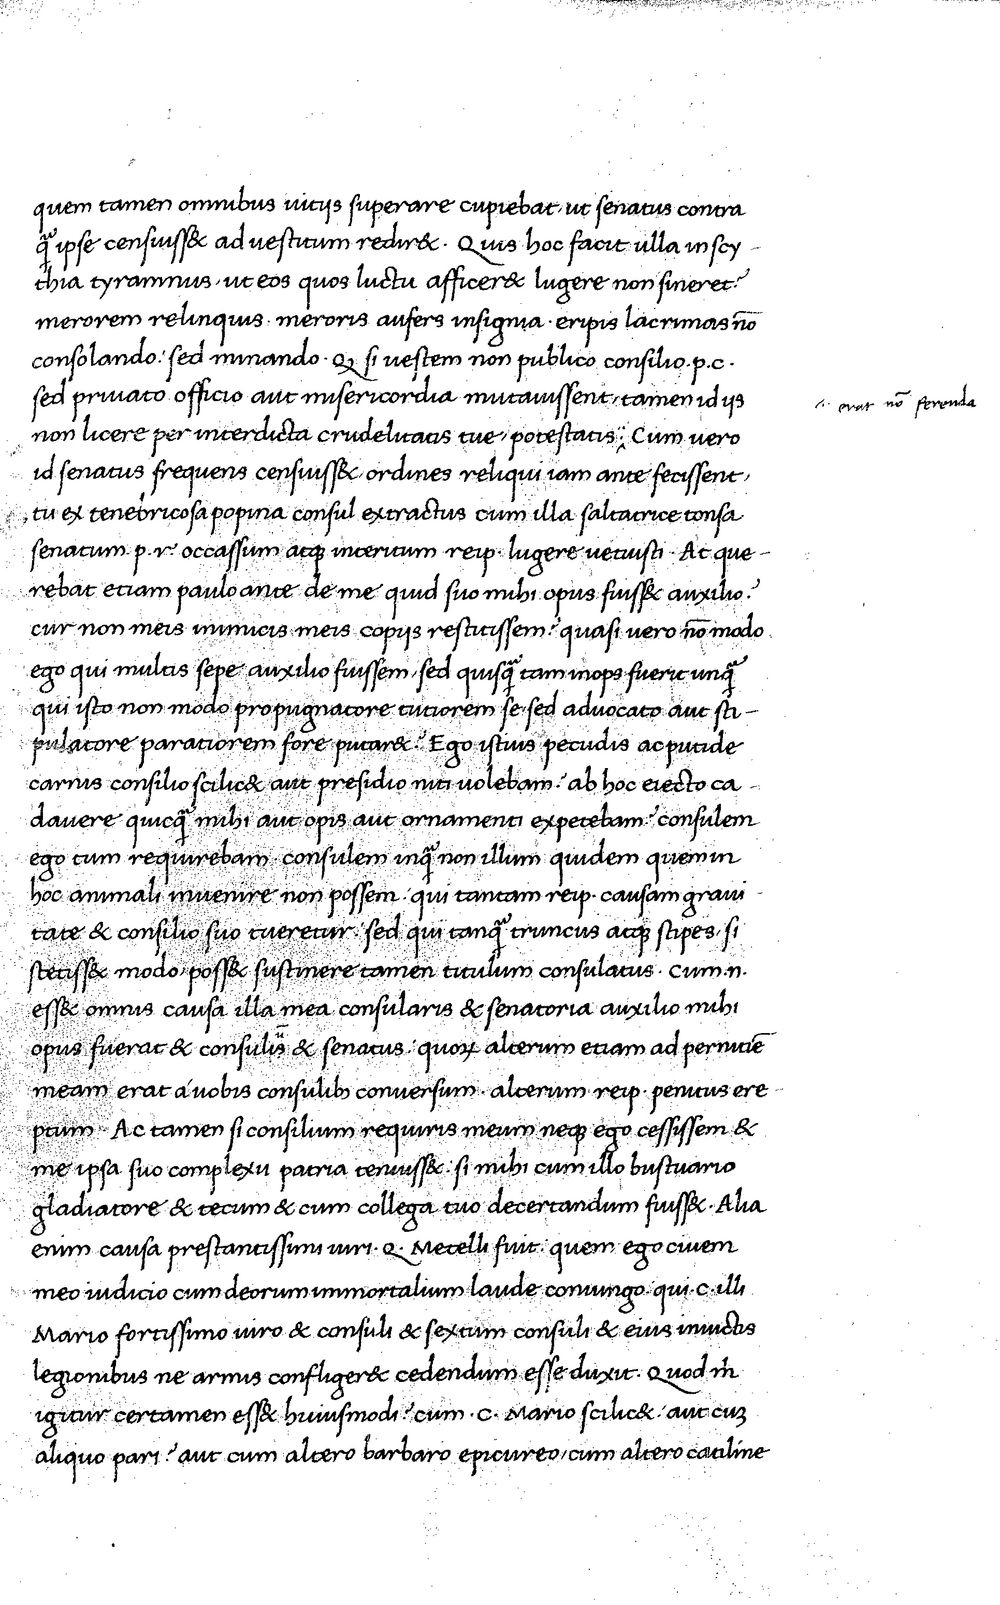 quem tamen omnibus uitijs superare cupiebat, ut senatus contra
q̃ ipse censuiss& ad uestitum redir&. Quis hoc facit ulla in scy-
thia tyramnus, ut eos quos luctu afficer& lugere non sineret?
merorem relinquis. meroris aufers insignia. eripis lacrimas nō
consolando: sed minando. Q si uestem non publico consilio.p.c.
sed priuato officio aut misericordia mutauissent, tamen id ijs
non licere per interdicta crudelitatis tue, potestatis; Cum uero
erat nō ferenda
id senatus frequens censuiss&, ordines reliqui iam ante fecissent,
tu ex tenebricosa popina consul extractus cum illa saltatrice tonsa
senatum.p.r. occassum atq; interitum reip. lugere uetuisti. At que-
rebat etiam paulo ante de me quid suo mihi opus fuiss& auxilio?
cur non meis inimicis meis copijs restitissem? quasi uero nō modo
ego qui multis sepe auxilio fuissem, sed quisq̃ tam inops fuerit unq̃
qui isto non modo propugnatore tutiorem se, sed aduocato aut sti-
pulatore paratiorem fore putar&? Ego istius pecudis ac putide
carnis consilio scilic& aut presidio niti uolebam? ab hoc eiecto ca-
dauere quicq̃ mihi aut opis aut ornamenti expetebam? consulem
ego tum requirebam. consulem inq̃ non illum quidem quem in
hoc animali inuenire non possem. qui tantam reip. causam graui-
tate & consilio suo tueretur. sed qui tanq̃ truncus atq; stipes, si
stetiss& modo, poss& sustinere tamen titulum consulatus. cum.n.
ess& omnis causa illa mea consularis & senatoria auxilio mihi
opus fuerat & consulis & senatus: quoꝝ alterum etiam ad pernitiē
meam erat á uobis consulib; conuersum. alterum reip. penitus ere-
ptum. Ac tamen si consilium requiris meum neq; ego cessissem &
me ipsa suo complexu patria tenuiss&: si mihi cum illo bustuario
gladiatore & tecum & cum collega tuo decertandum fuiss&. Alia
enim causa prestantissimi uiri.Q. Metelli fuit: quem ego ciuem
meo iudicio cum deorum immortalium laude coniungo. qui.C.illi
Mario fortissimo uiro & consuli & sextum consuli & eius inuictis
legionibus ne armis confliger& cedendum esse duxit. Quod m̄
igitur certamen ess& huiusmodi? cum.C. Mario scilic&? aut cuꝫ
aliquo pari? aut cum altero barbaro epicureo, cum altero catiline